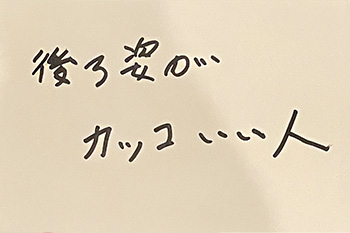 後ろ姿が
カッコいい人